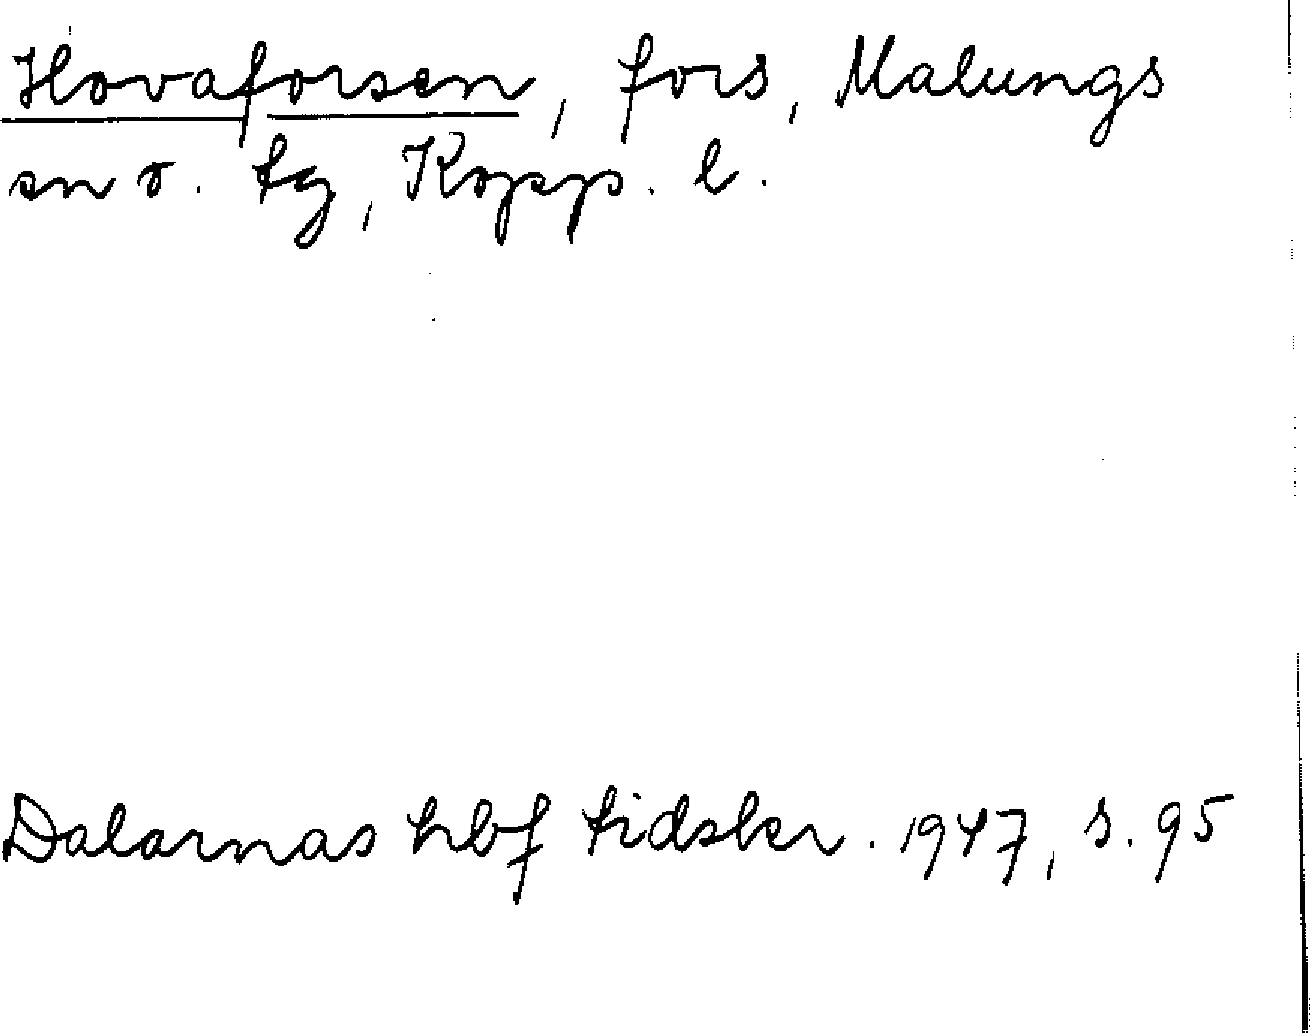 Hovaforsen, fors, Malungs
sn o. tg, Kopp. l.
Dalarnas hbf tidskr. 1947, s. 95